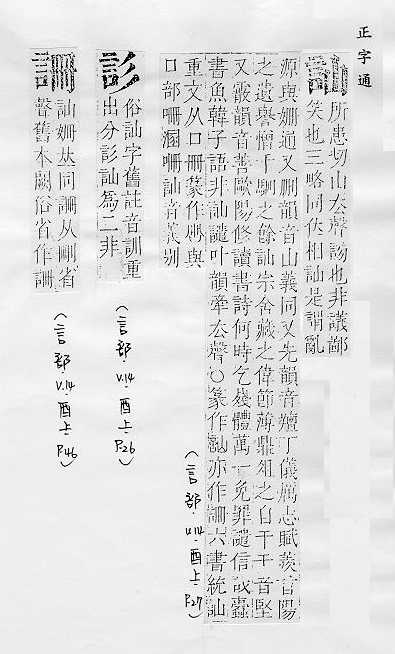 正字通
訕
所患切山去聲謗也非議鄙
笑也三略同佚相訕是謂亂
源與姍通又刪韻音山義同又先韻音羶丁儀厲志賦羨首陽
之遺譽憎千駟之餘訕宗舍藏之偉節薄鼎俎之自干干音堅
又霰韻音善歐陽修讀書詩何時乞殘體萬一免罪譴信哉蠹
書魚韓子語非訕譴叶韻牽去聲○篆作亦作䛹六書統訕
重文从口冊篆作與
口部訕音義别
(言部.v.14.酉上.P.27)
俗訕字舊註音訓重
出分訕為二非
(言部.v.14.酉上.P.26)
䛹
訕姍𠀤同䛹从刪省
聲舊本闕俗省作䛹
(言部.v.14.酉上.P.46)